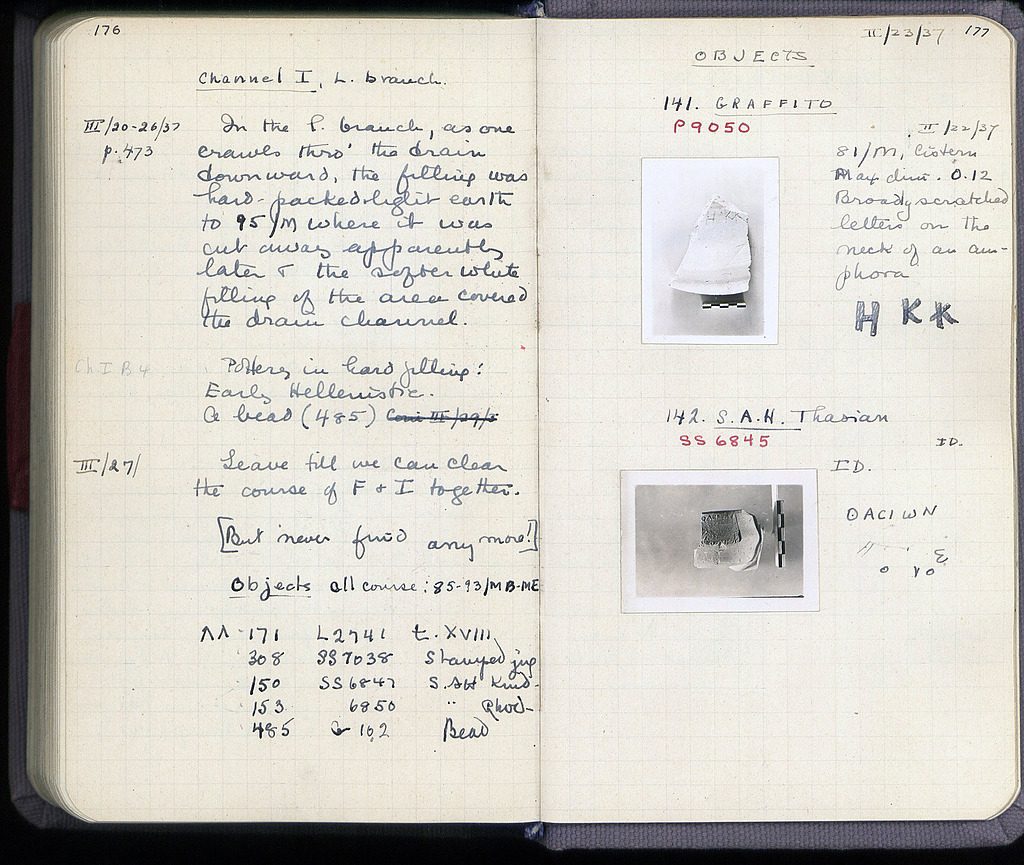 176
Channel I, L. branch.
III/20-26/37
p. 473
In the L. branch, as one
crawls thro' the drain
downward, the filling was
hard-packed light earth
to 95/M where it was
cut away apparently
later & the softer white
filling of the area covered
the drain channel.
Ch. I B4
Pottery in hard filling:
Early Hellenistic.
A bead (485) Coin III/29/3
III/27/
Leave till we can clear
the course of F & I together.
[But never find any more!]
Objects all course: 85-93/MB-ME
ΛΛ-171 L2741 t. XVIII
308 SS7038 Stamped jug
150 SS6847 S.AH Knid-
153 6850 " Rhod-
485 G 162 Bead
II/23/37 177
OBJECTS
141. GRAFFITO
P9050
II/22/37
81/M, Cistern
Max dim. 0.12
Broadly scratched
letters on the
neck of an am-
phora
H KK
142. S.A.H. Thasian
SS 6845
ID.
ID.
ΘΑCΙωΝ